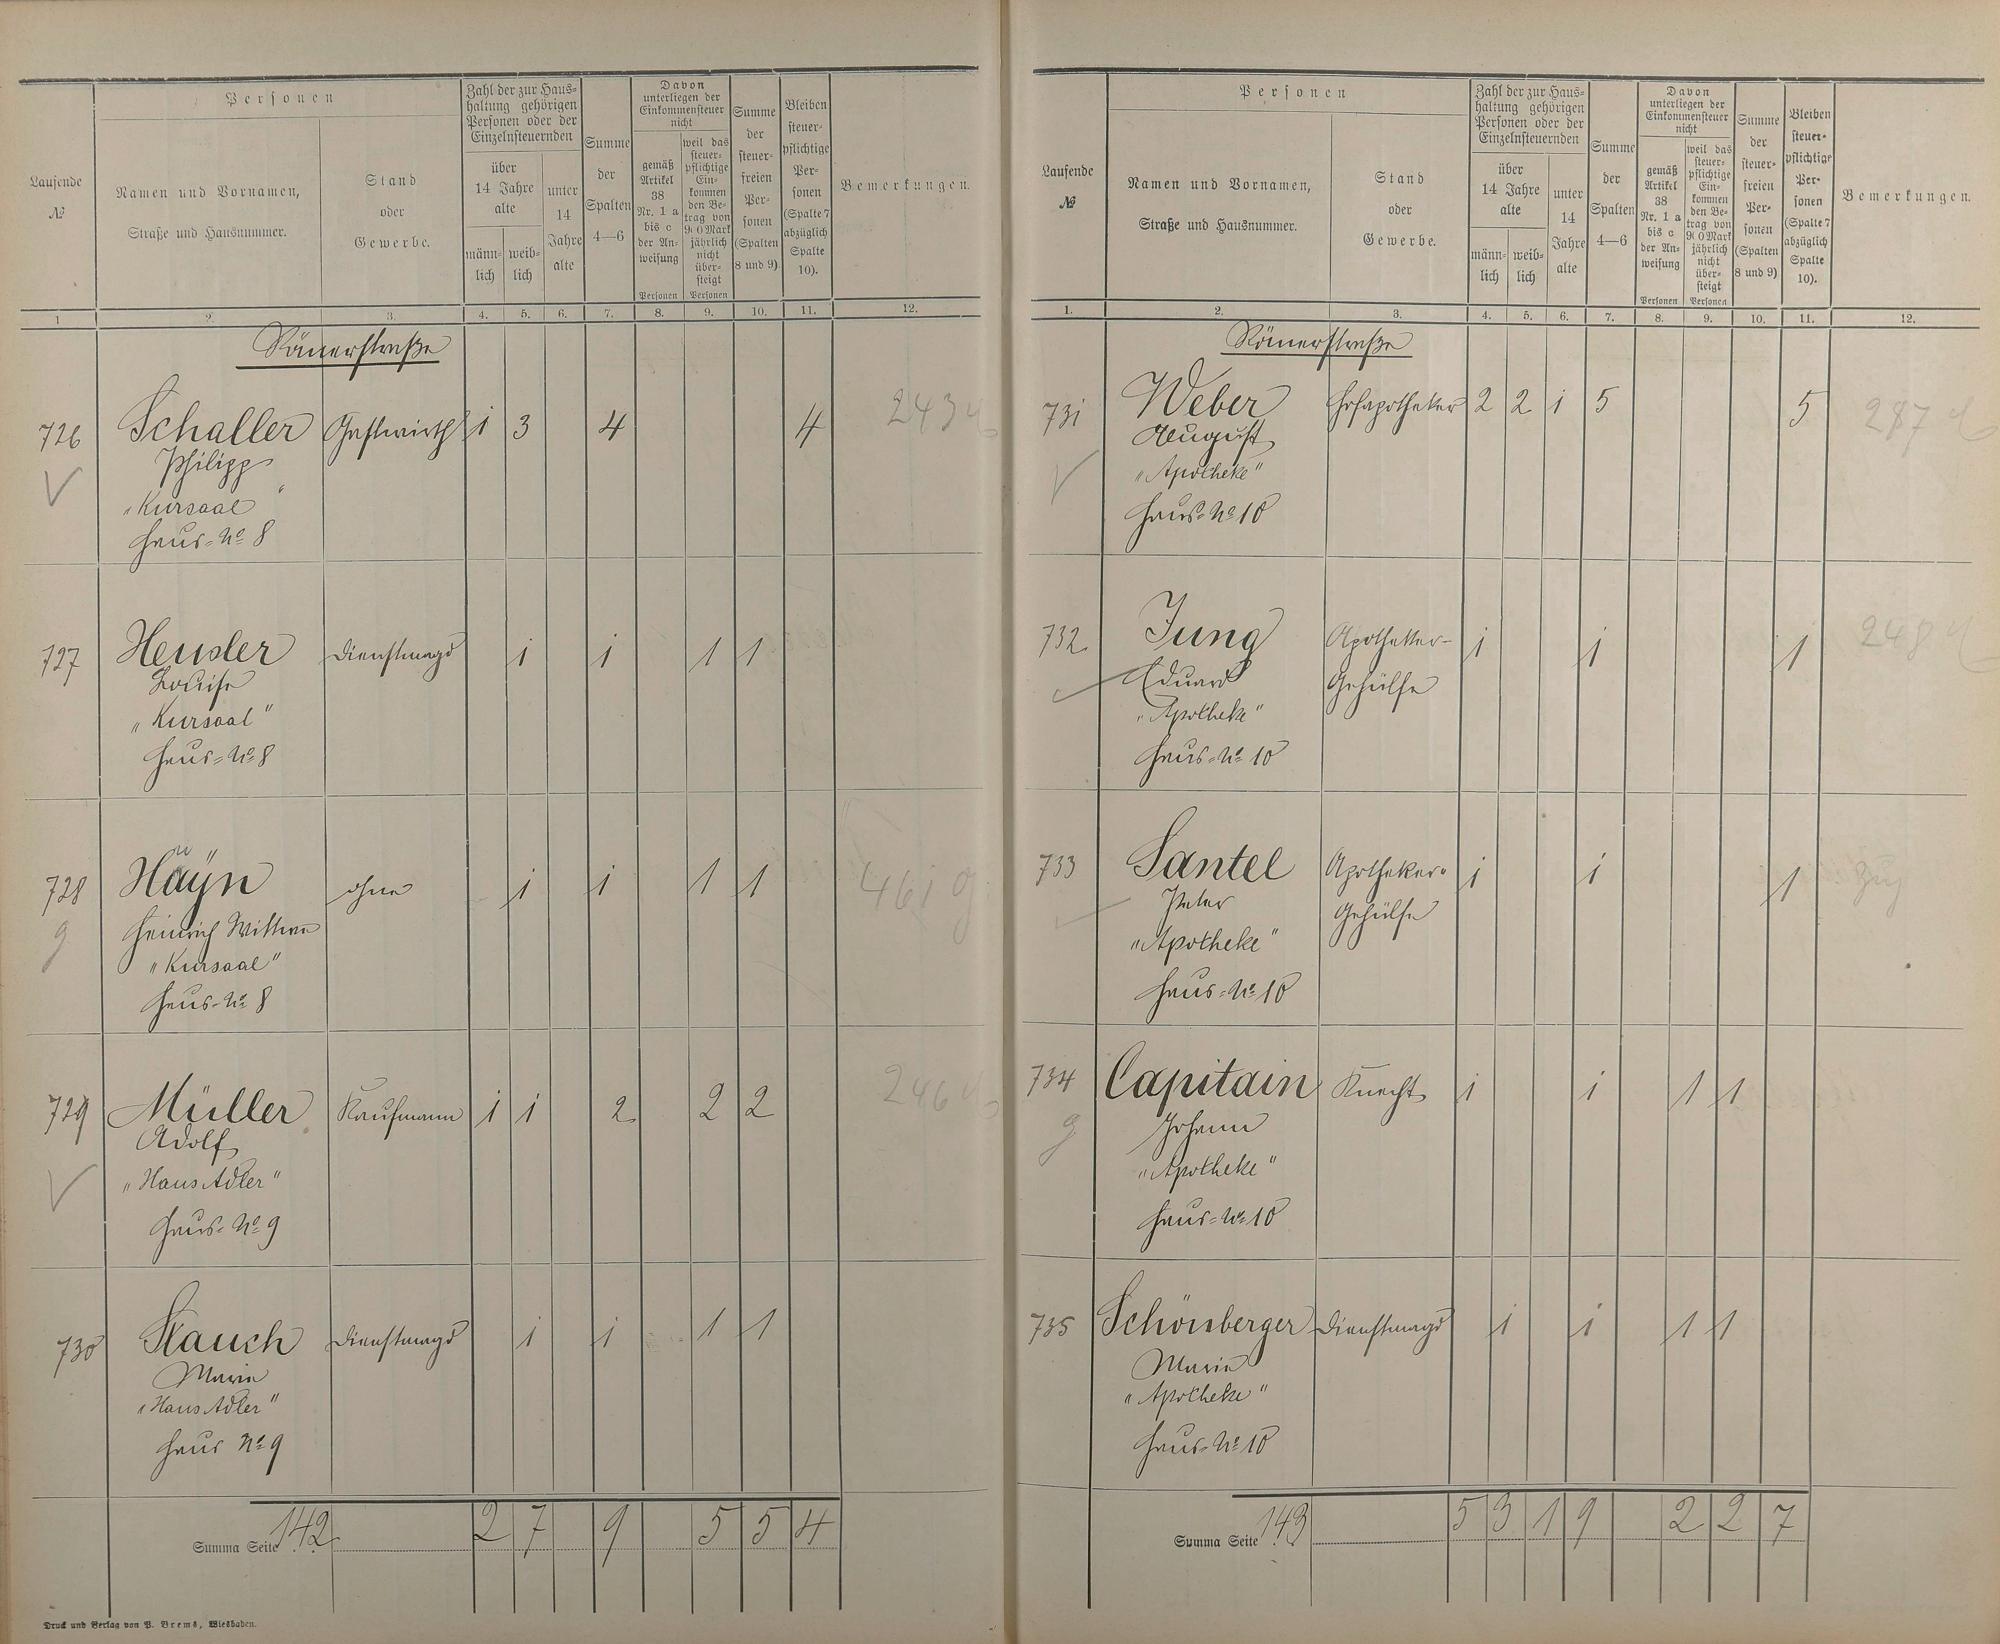 Laufende
№
Personen
Namen und Vornamen,
Straße und Hausnummer.
Stand
oder
Gewerbe.
Zahl der zur Haus=
haltung gehörigen
Personen oder der
Einzelnsteuernden
über
14 Jahre
alte
männ=
lich
weib=
lich
unter
14
Jahre
alte
Summe
der
Spalten
4—6
Davon
unterliegen der
Einkommensteuer
nicht
gemäß
Artikel
38
Nr. 1 a
bis c
der An=
weisung
Personen
weil das
steuer=
pflichtige
Ein=
kommen
den Be=
trag von
900 Mark
jährlich
nicht
über=
steigt
Personen
Summe
der
steuer=
freien
Per=
sonen
(Spalten
8 und 9)
Bleiben
steuer=
pflichtige
Per=
sonen
(Spalte 7
abzüglich
Spalte
10).
Bemerkungen.
1 2. 3. 4. 5. 6. 7. 8. 9. 10. 11. 12.
Römerstraße
726 Schaller Gastwirth 1 3 4 4 243
Philipp
"Kursaal"
Haus=No 8
727 Heusler Dienstmagd 1 1 1 1
Louise
"Kursaal"
Haus=No 8
728 Häyn ohne 1 1 1 1 461 g
g Heinrich Wittwe
"Kursaal"
Haus=No 8
729 Müller Kaufmann 1 1 2 2 2 246
Adolf
"Haus Adler"
Haus=No 9
730 Stauch Dienstmagd 1 1 1 1
Marie
"Haus Adler"
Haus No 9
Summa Seite 142 2 7 9 5 5 4
Druck und Verlag von P. Brems, Wiesbaden.
Laufende
№
Personen
Namen und Vornamen,
Straße und Hausnummer.
Stand
oder
Gewerbe.
Zahl der zur Haus=
haltung gehörigen
Personen oder der
Einzelnsteuernden
über
14 Jahre
alte
männ=
lich
weib=
lich
unter
14
Jahre
alte
Summe
der
Spalten
4—6
Davon
unterliegen der
Einkommensteuer
nicht
gemäß
Artikel
38
Nr. 1 a
bis c
der An=
weisung
Personen
weil das
steuer=
pflichtige
Ein=
kommen
den Be=
trag von
900 Mark
jährlich
nicht
über=
steigt
Personen
Summe
der
steuer=
freien
Per=
sonen
(Spalten
8 und 9)
Bleiben
steuer=
pflichtige
Per=
sonen
(Spalte 7
abzüglich
Spalte
10).
Bemerkungen.
1. 2. 3. 4. 5. 6. 7. 8. 9. 10. 11. 12.
Römerstraße
731 Weber Hofapotheker 2 2 1 5 5 287
August
"Apotheke"
Haus=No 10
732 Jung Apotheker= 1 1 1 248
Eduard Gehülfe
"Apotheke"
Haus=No 10
733 Santel Apotheker= 1 1 1
Peter Gehülfe
"Apotheke"
Haus=No 10
734 Capitain Knecht 1 1 1 1
g Johann
"Apotheke"
Haus=No 10
735 Schönberger Dienstmagd 1 1 1 1
Marie
"Apotheke"
Haus=No 10
Summa Seite 143 5 3 1 9 2 2 7